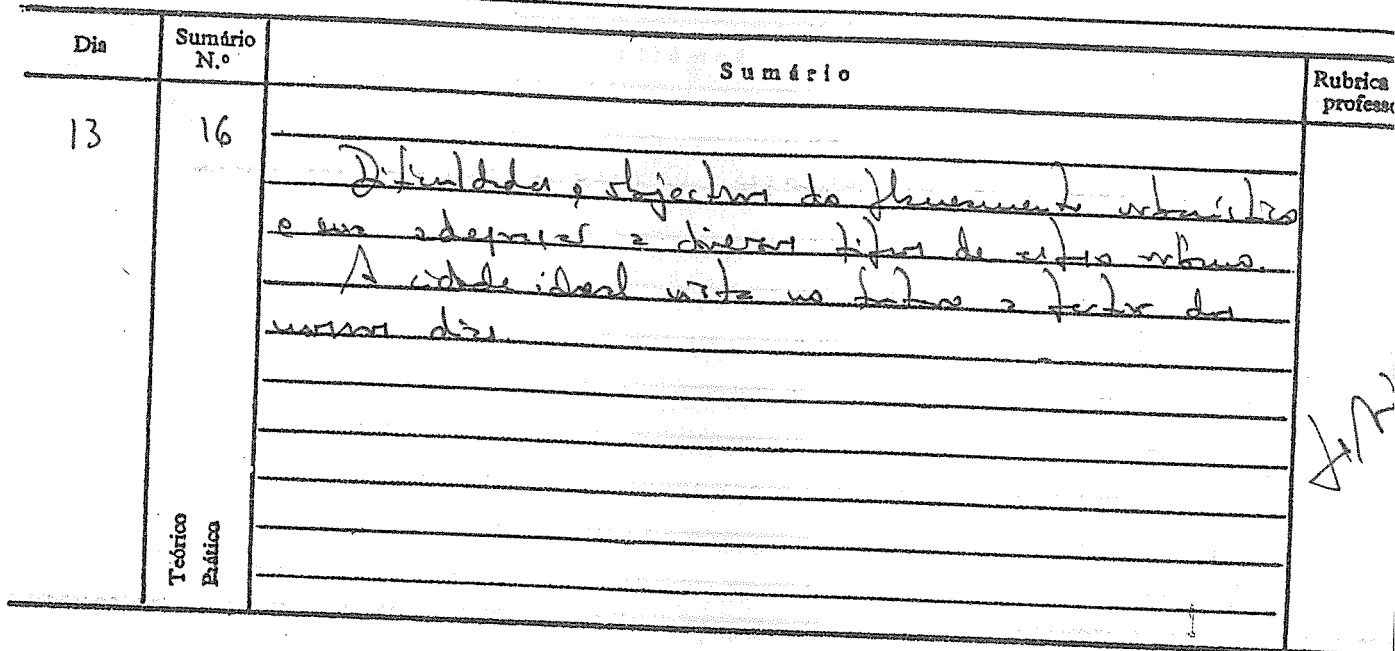 Dia
Sumário N.º
Sumário
Rubrica
professo
13
16
Dificuldades e objectivos do planeamento urbanístico
e sua adequação a diversos tipos de centros urbanos.
A cidade ideal vista no futuro a partir dos
nossos dias.
Teórico
Prático